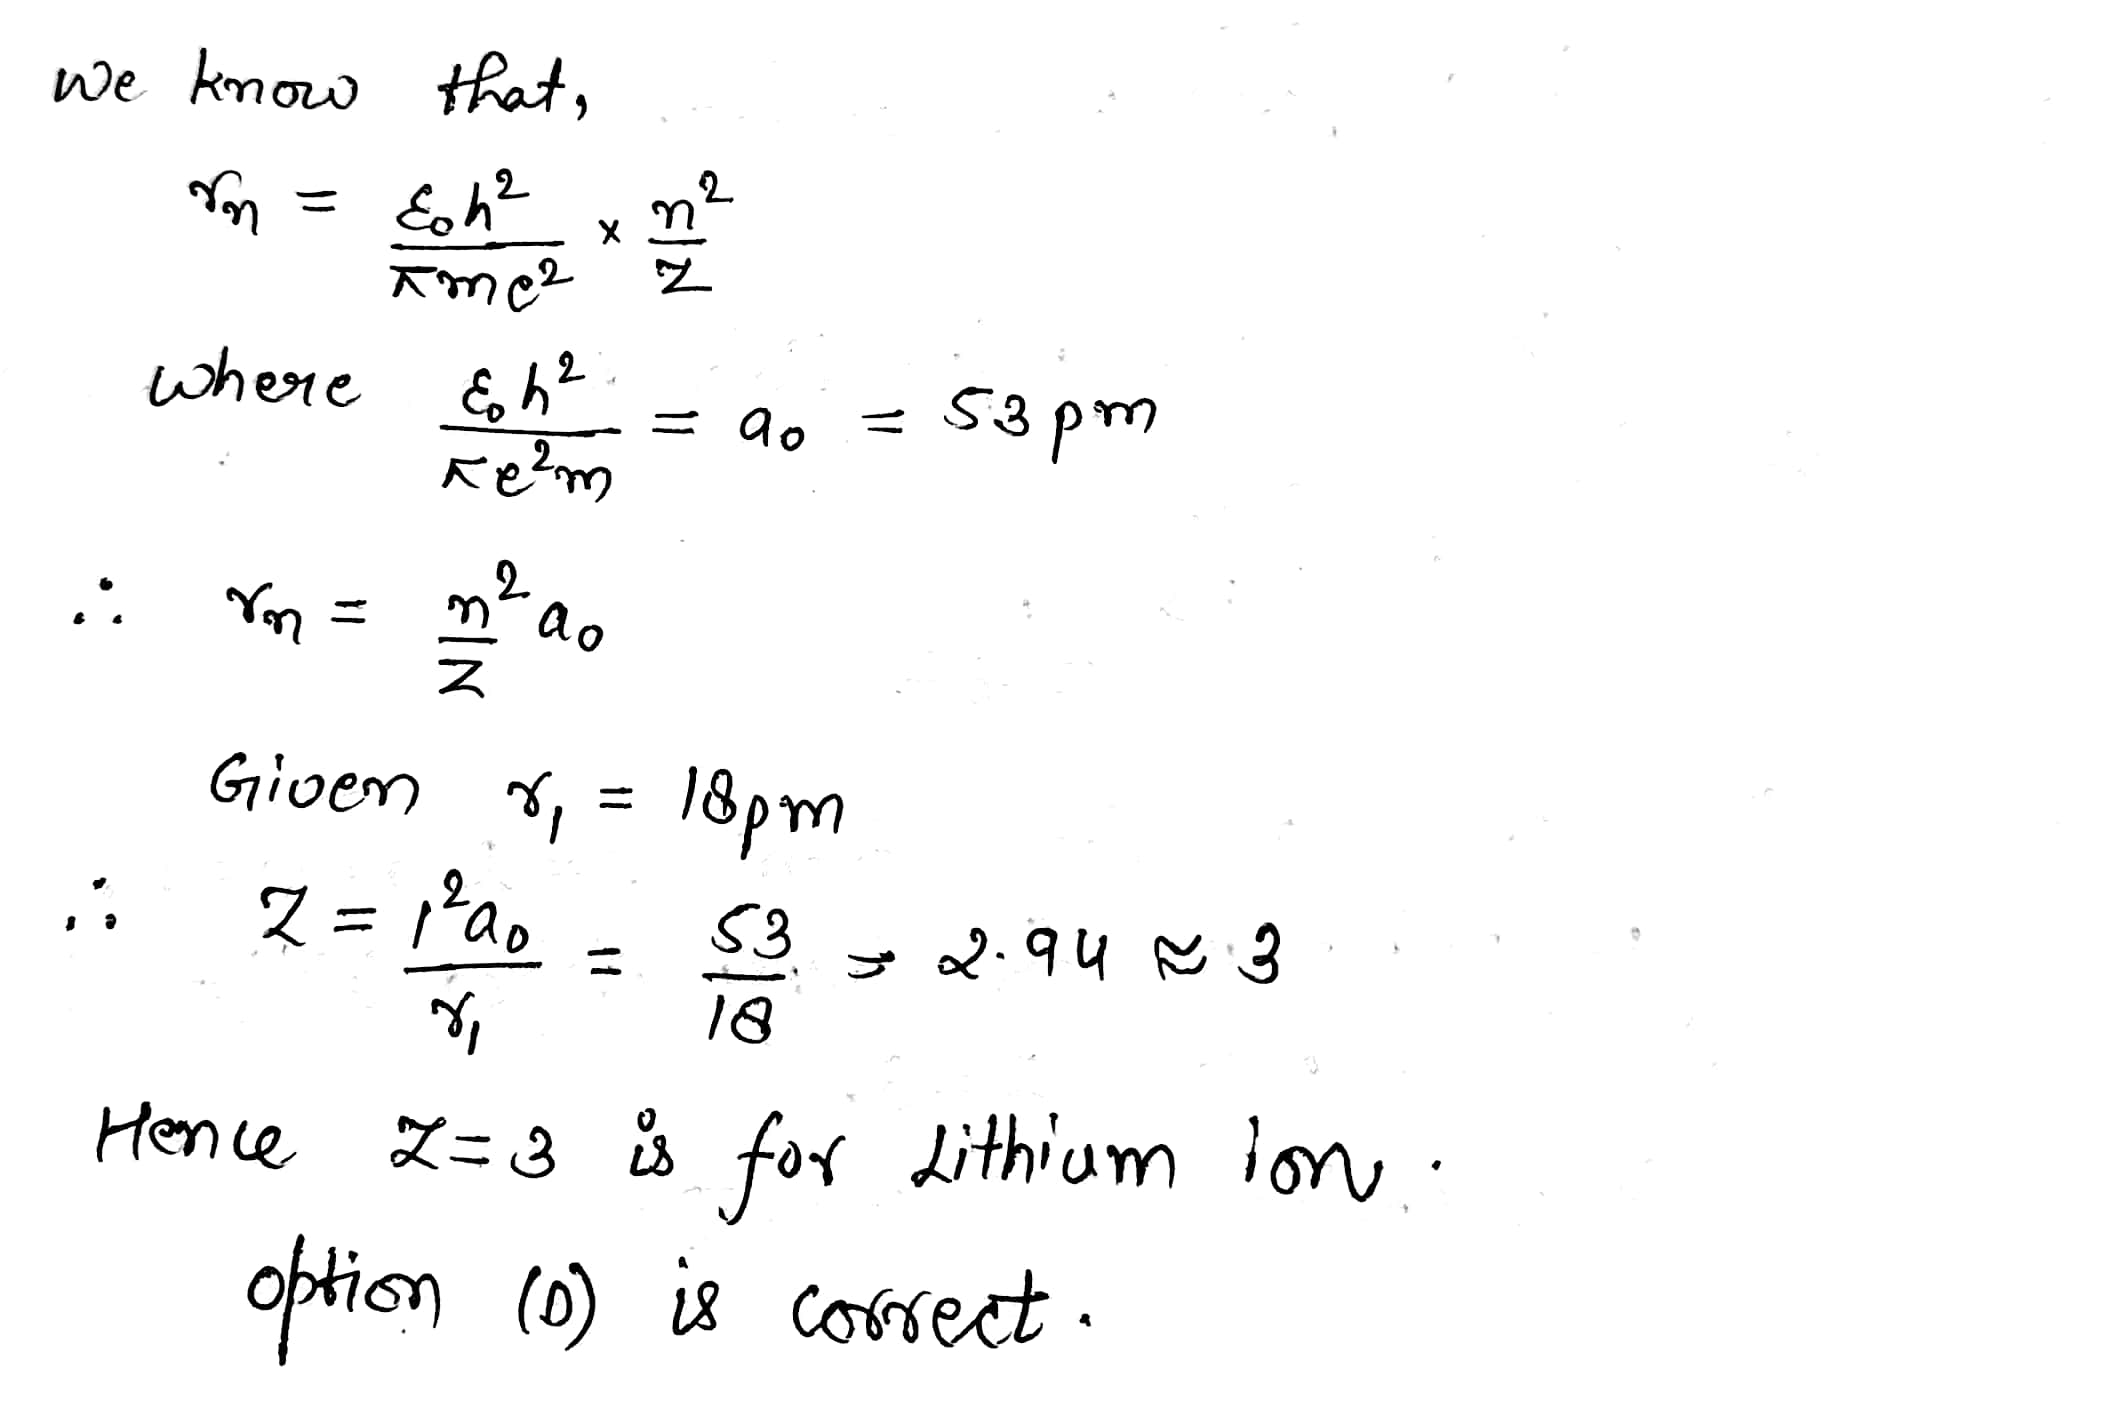 We know that,
rn = ε₀h² / πme² × n² / Z
where ε₀h² / πe²m = a₀ = 53 pm
∴ rn = n² / Z a₀
Given r₁ = 18pm
∴ Z = 1²a₀ / r₁ = 53 / 18 = 2.94 ≈ 3
Hence Z=3 is for Lithium Ion.
option (D) is correct.